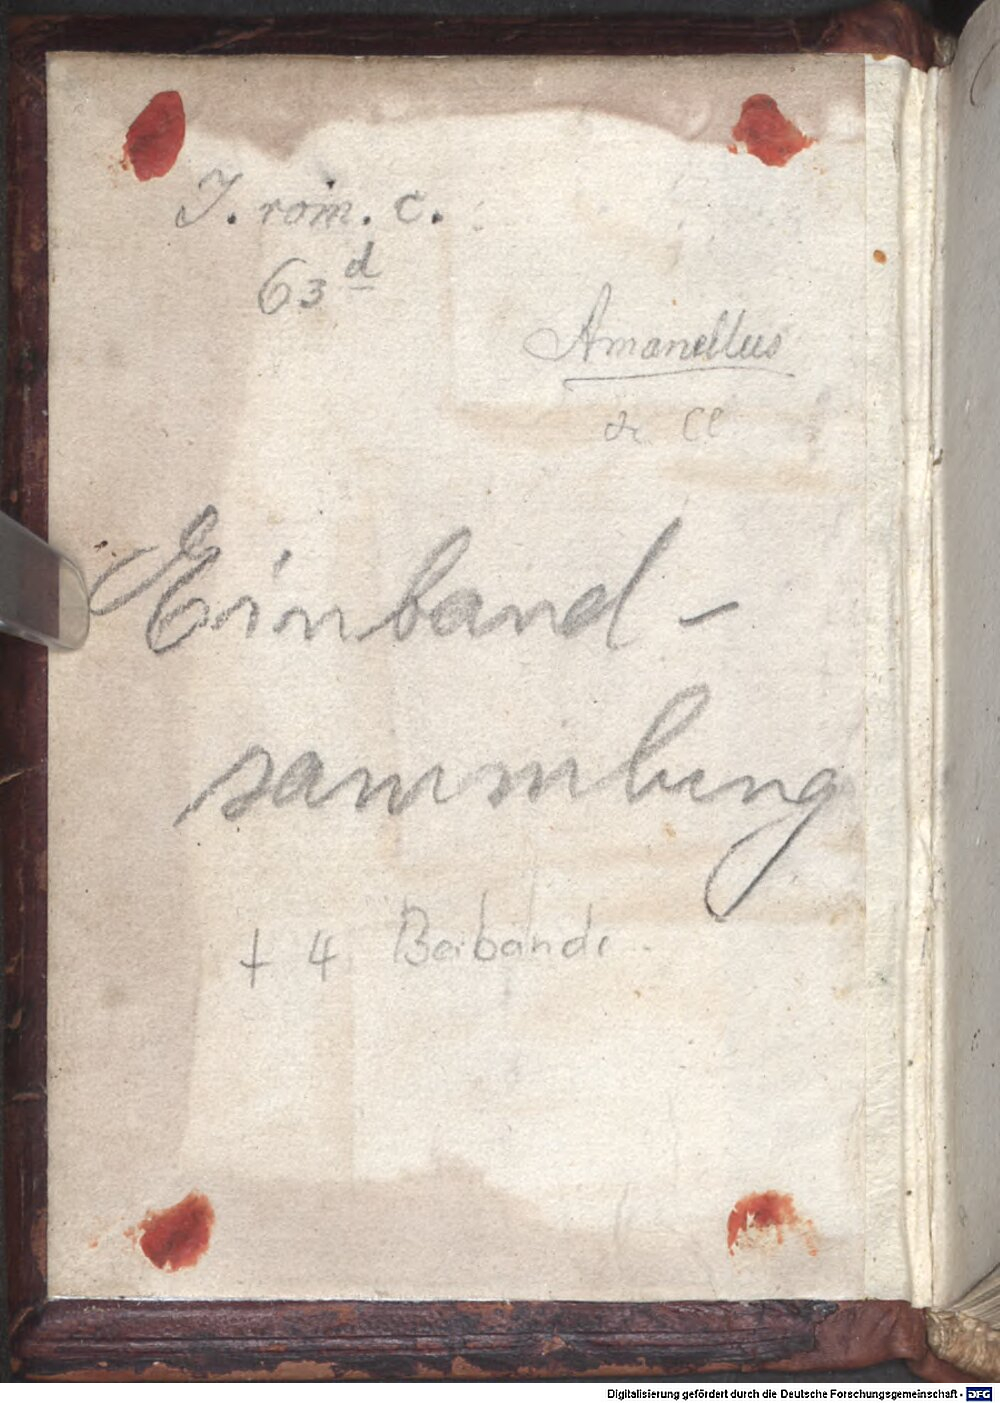 J. rom. c.
63 d
Amanellus
de Cl
Einband-
sammlung
+ 4 Beibände
Digitalisierung gefördert durch die Deutsche Forschungsgemeinschaft - DFG